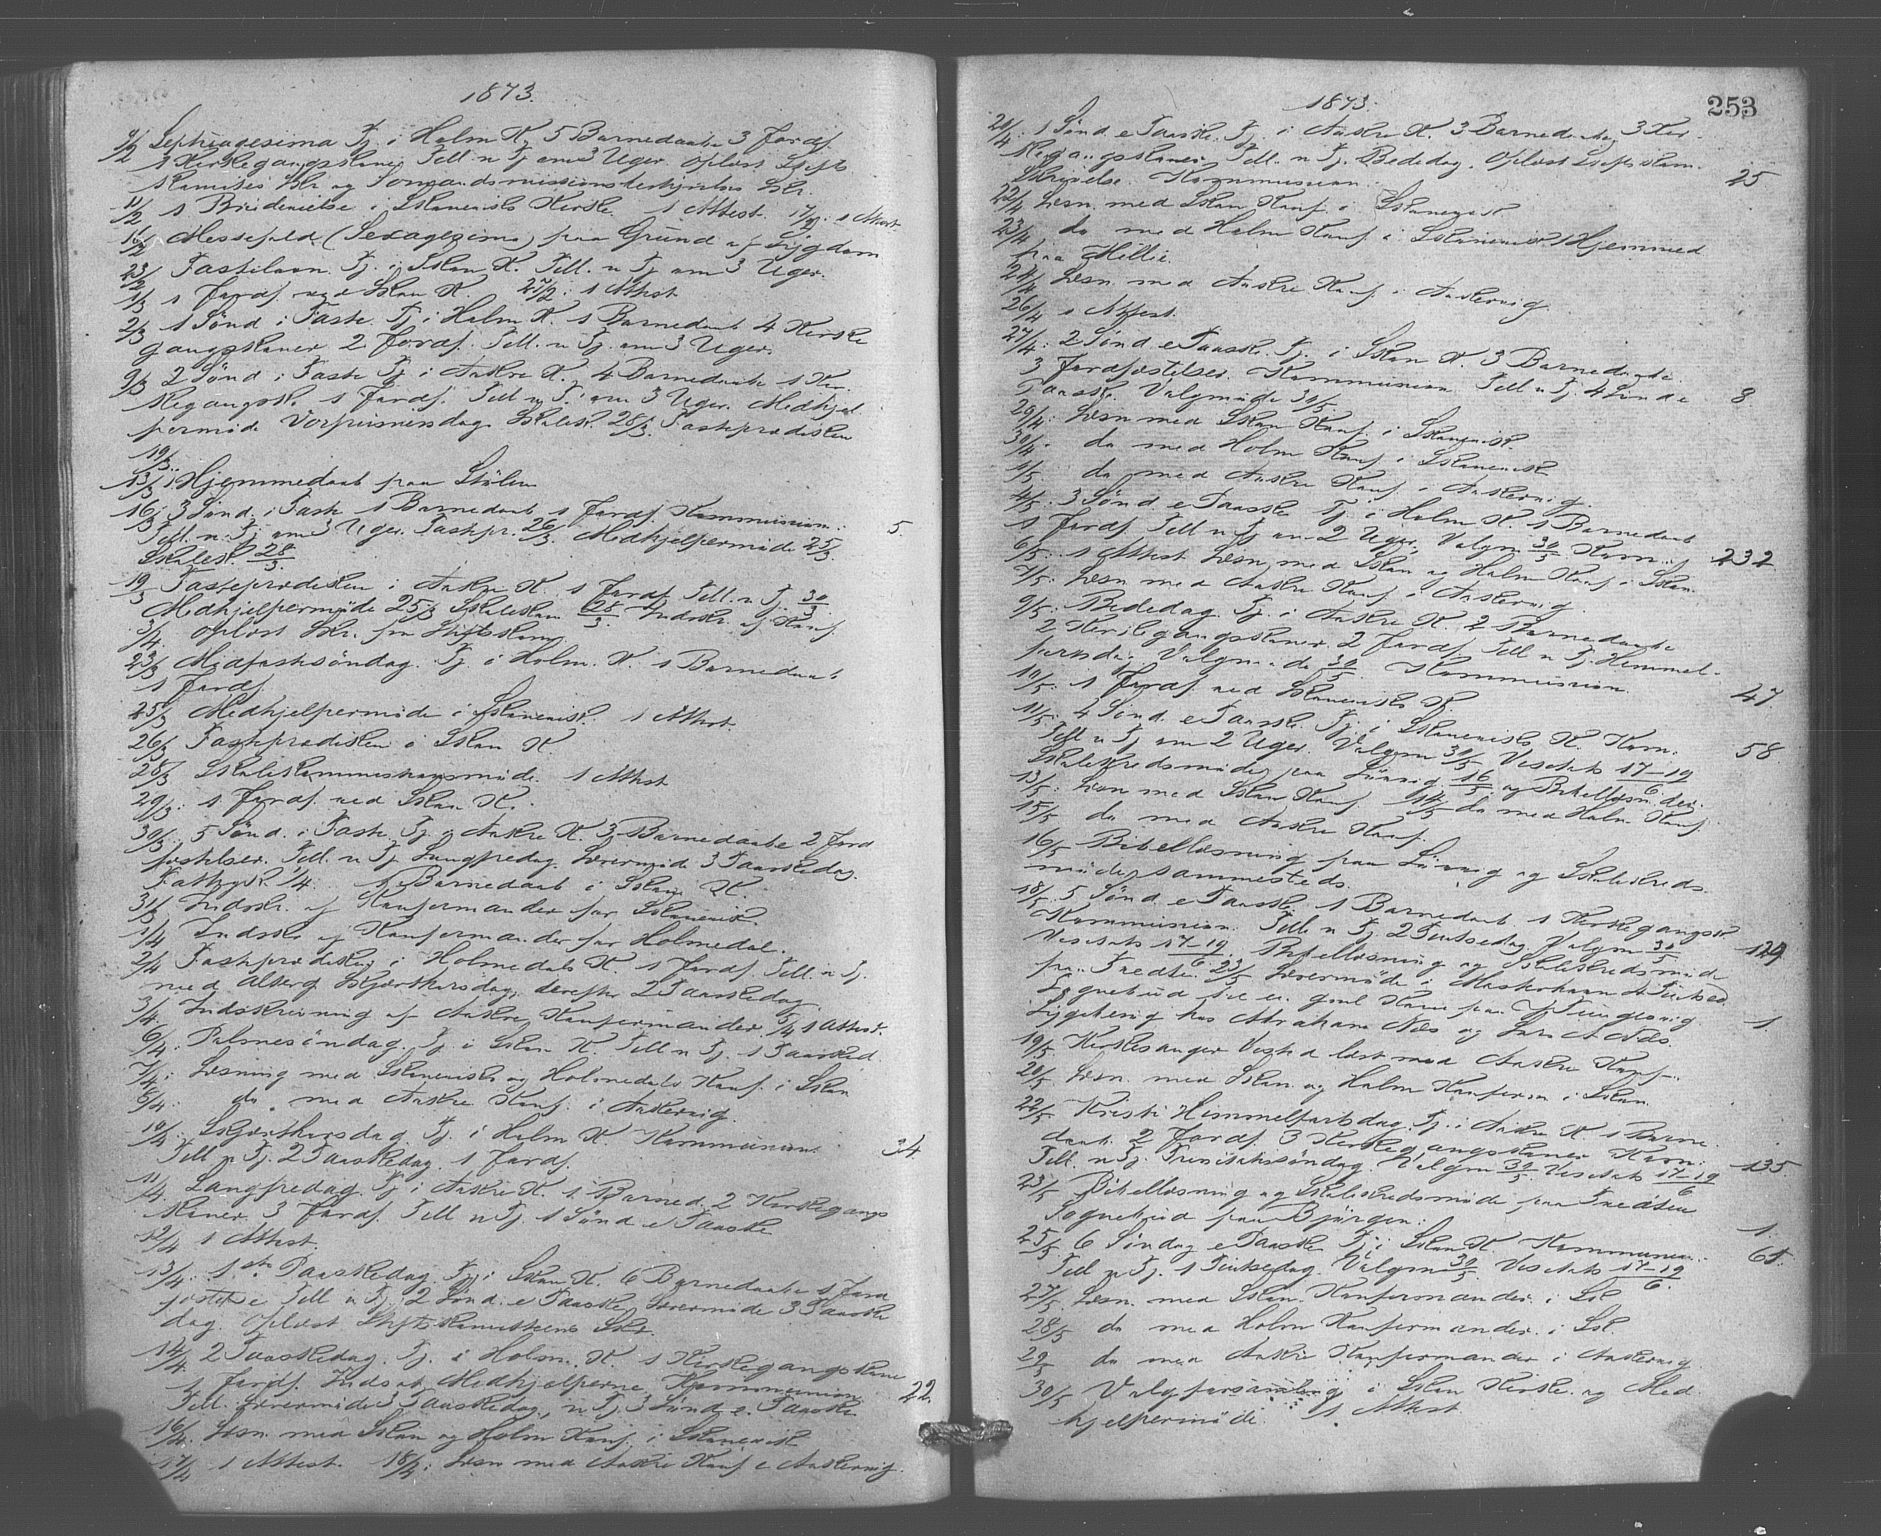 1873.
9/2 Septuagesima Tj. i Holm K. 5 Barnedaabe 3 Jordf.
1 Kirkegangskone Till. n Tj om 3 Uger. Oplæst Stifts
11/2 1 Brudevielse i Skaneviks Kirke. 1 Attest. 17/2: 1 Attest
16/2 Messefald (Sexagezima) paa Grund af Sygdom
23/2 Fastelavn. Tj. i Skan K. Till. n Tj om 3 Uger.
1/3 1 Jordf. ved Skan K. 27/2: 1 Attest
2/3 1 Sønd i Faste. Tj. i Holm K. 1 Barnedaab 4 Kirke
gangskoner 2 Jordf. Till. n Tj. om 3 Uger.
9/3 2 Sønd i Faste Tj i Aakre K. 4 Barnedaabe 1 Kir-
kegangsk. 1 Jordf. Till n Tj. om 3 Uger. Medhjel
permøde Skolek. 28/3. Fasteprædiken
19/3.
13/3 1 Hjemmedaab paa Stølen
16/3: 3 Sønd. i Faste 1 Barnedaab 1 Jordf. Kommunion: 5.
Till. n. Tj om 3 Uger. Fastepr. 26/3. Medhjelpermøde 25/3.
Skolek. 28/3.
19/3 Fasteprædiken i Aakre K. 1 Jordf. Till. n. Tj. 30/3
Medhjelpermøde 25/3 Skolekom 28/3. Indskr. af Konf.
3/4. Oplæst Skr. fra Stiftskom
23/3 Midfastesøndag. Tj. i Holm. K. 1 Barnedaab
1 Jordf.
25/3 Medhjelpermøde i Skanevik. 1 Attest.
26/3 Fasteprædiken i Skan K.
28/3 Skolekommissionsmøde. 1 Attest
29/3: 1 Jordf. ved Skan K.
30/3. 5 Sønd. i Faste. Tj. i Aakre K. 3 Barnedaabe 2 Jord
fæstelser. Till. n Tj Langfredag. Lærermøde 3 Paaskedag.
1/4. Barnedaab i Skan K.
31/3 Indskr. af Konfirmander for Skanevik.
1/4 Indskr af Konfirmander for Holmedal.
2/4 Fasteprædiken i Holmedals K. 1 Jordf. Till. n Tj.
med Alterg. Skjærthorsdag, derefter 2 Paaskedag.
3/4. Indskrivning af Aakre Konfirmander. 5/4 1 Attest.
6/4: Palmesøndag. Tj. i Skan K. Till n Tj. 1 Paasked.
7/4: Læsning med Skaneviks og Holmedals Konf. i Skan
do. med Aakre Konf. i Aakervig.
10/4: Skjærthorsdag. Tj. i Holm K. Kommunion. 34
Till n Tj. 2 Paaskedag. 1 Jordf.
11/4. Langfredag. Tj i Aakre K. 1 Barned. 2 Kirkegangs
koner. 3 Jordf. Till n Tj. 1 Sønd e Paaske
12/4 1 Attest.
13/4. 1ste Paaskedag. Tj i Skan K. 6 Barnedaabe 1 Jord
fæstelse Till n Tj 2 Sønd. e Paaske. Lærermøde 3 Paaske
dag. Oplæst Stiftskommissionens Skr.
14/4 2 Paaskedag. Tj. i Holm. K. 1 Kirkegangskone
1 Jordf. Indsat Medhjelperne Kommunion 22.
Till. Lærermøde 3 Paaskedag, n Tj. 3 Sønd e. Paaske
16/4. Læsn. med Skan og Holm Konf. i Skanevik
17/4 1 Attest. 18/4: Læsn med Aakre Konf i Aakervig.
1873.
253
20/4. 1 Sønd. e Paaske. Tj. i Aakre K. 3 Barnedaabe, 3 Kir-
kegangskoner. Till. n Tj. Bededag. Oplæst Stiftskom.
Skrivelse. Kommunion. 25
22/4 Læsn. med Skan Konf. i Skanevik
23/4 do med Holm Konf. i Skanevik 1 Hjemmed
paa Millie.
24/4 Læsn. med Aakre Konf. i Aakervig
26/4 1 Attest.
27/4: 2 Sønd. e Paaske. Tj. i Skan K. 3 Barnedaabe.
3 Jordfæstelser. Kommunion. Till n Tj. 4 Sønd e 8
Paaske. Valgmøde 30/5.
29/4: Læsn med Skan Konf. i Skanevik.
30/4. do med Holm Konf. i Skanevik
1/5. do med Aakre Konf. i Aakervig.
4/5. 3 Sønd e Paaske Tj. i Holm K. 1 Barnedaab
1 Jordf. Till n Tj om 2 Uger. Valgm 30/5 Kom: 232
6/5. 1 Attest. Læsn. med Skan og Holm Konf. i Skan.
7/5: Læsn med Aakre Konf. i Aakervig.
9/5: Bededag. Tj. i Aakre K. 2 Barnedaabe
2 Kirkegangskoner 2 Jordf. Till n Tj. Himmel-
fartsdag. Valgmøde 30/5. Kommunion. 47
10/5: 1 Jordf. ved Skaneviks K
11/5: 4 Sønd. e Paaske Tj. i Skaneviks K. Kom: 58
Till n Tj om 2 Uger. Valgm 30/5 Visitats 17-19/6
Skolekredsmøde paa 16/5. og Bibellæsn der.
13/5: Læsn med Skan Konf. 14/5 do med Holm Konf.
15/5 do med Aakre Konf.
16/5 Bibellæsning paa og Skolekreds
møde sammesteds.
18/5. 5 Sønd. e Paaske. 1 Barnedaab 1 Kirkegangsk
Kommunion. Till n Tj. 2 Pintsedag. Valgm 30/5 129
Visitats 17-19/6 Bibellæsning og Skolekredsmøde
23/5 Lærermøde i
Sognebud til en gml Kone paa 1.
Sygebesøg hos Abrahams Næs og
19/5 Kirkesanger læst med Aakre Konf.
20/5 Læsn. med Skan. og Holm Konfirm i Skan.
22/5 Kristi Himmelfartsdag Tj. i Aakre K 1 Barne-
daab. 2 Jordf. 3 Kirkegangskoner Kom: 135
Till. n Tj. Trinitatissøndag. Valgm 30/5. Visitats 17-19/6
23/5 Bibellæsning og Skolekredsmøde paa
Sognebud paa Bjørgen. 1.
25/5 6 Søndag e Paaske Tj. i Skan K. Kommunion. 65.
Till n Tj. 1 Pintsedag. Valgm 30/5. Visitats 17-19/6.
27/5. Læsn. med Skan. Konfirmander. i Sk.
28/5 do med Holm Konfirmander. i Sk.
29/5 do med Aakre Konfirmander i Aakervig.
30/5 Valgforsamling i Skan Kirke. og Med
hjelpermøde. 1 Attest.